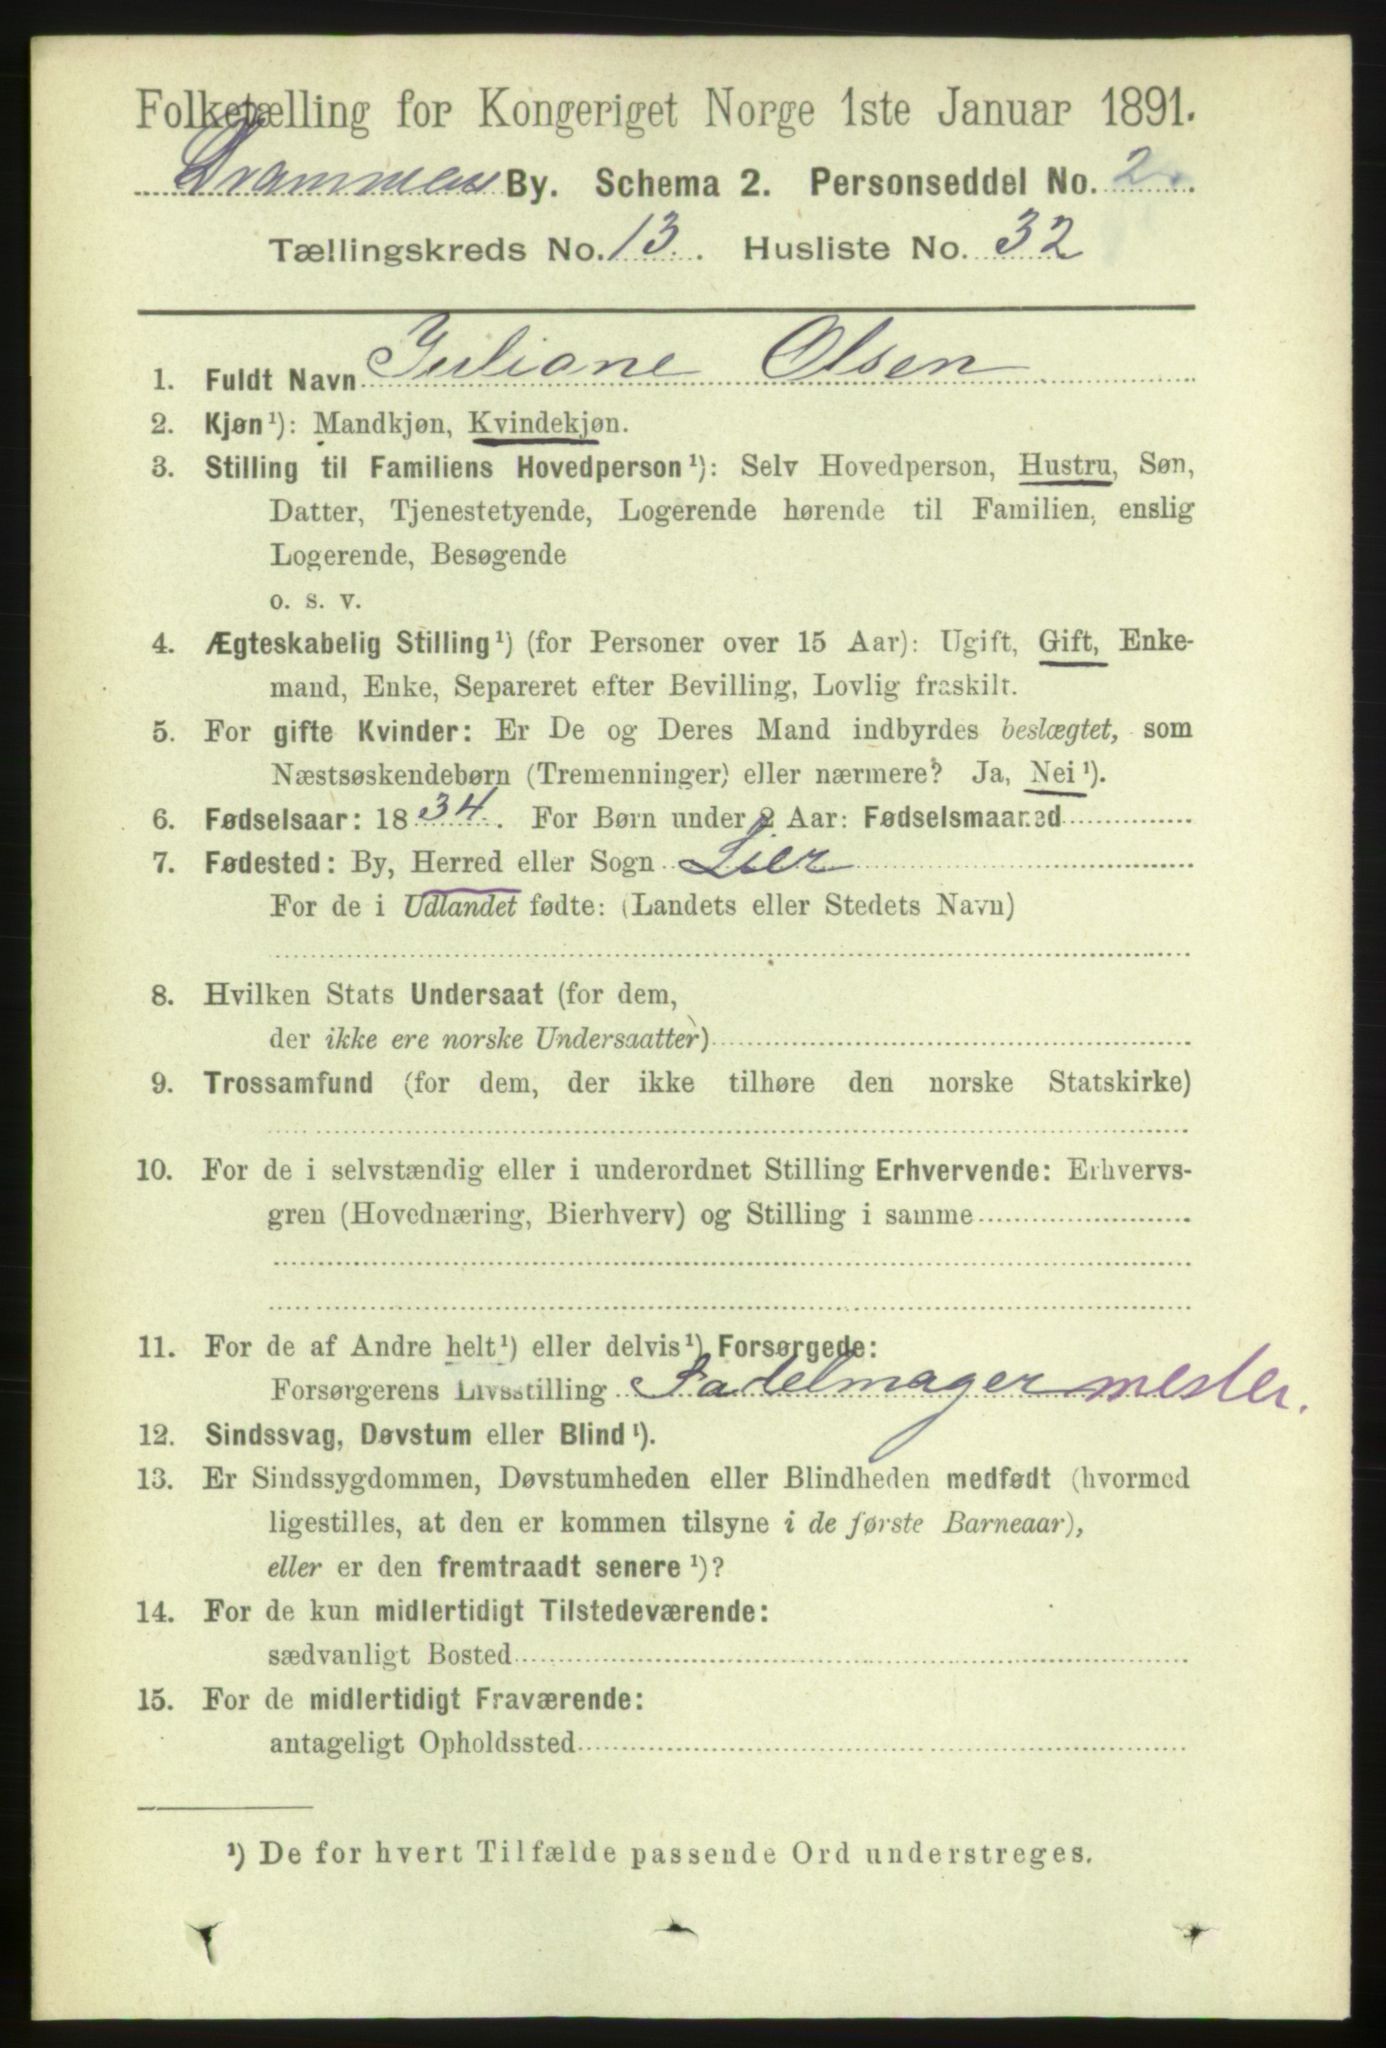 Folketælling for Kongeriget Norge 1ste Januar 1891.
Drammens By. Schema 2. Personseddel No. 2.
Tællingskreds No. 13. Husliste No. 32
1. Fuldt Navn Juliane Olsen
2. Kjøn¹): Mandkjøn, Kvindekjøn.
3. Stilling til Familiens Hovedperson¹): Selv Hovedperson, Hustru, Søn,
Datter, Tjenestetyende, Logerende hørende til Familien, enslig
Logerende, Besøgende
o. s. v.
4. Ægteskabelig Stilling¹) (for Personer over 15 Aar): Ugift, Gift, Enke-
mand, Enke, Separeret efter Bevilling, Lovlig fraskilt.
5. For gifte Kvinder: Er De og Deres Mand indbyrdes beslægtet, som
Næstsøskendebørn (Tremenninger) eller nærmere? Ja, Nei¹).
6. Fødselsaar: 1834. For Børn under 2 Aar: Fødselsmaaned
7. Fødested: By, Herred eller Sogn Lier
For de i Udlandet fødte: (Landets eller Stedets Navn)
8. Hvilken Stats Undersaat (for dem,
der ikke ere norske Undersaatter)
9. Trossamfund (for dem, der ikke tilhøre den norske Statskirke)
10. For de i selvstændig eller i underordnet Stilling Erhvervende: Erhvervs-
gren (Hovednæring, Bierhverv) og Stilling i samme
11. For de af Andre helt¹) eller delvis¹) Forsørgede:
Forsørgerens Livsstilling Sadelmager mester.
12. Sindssvag, Døvstum eller Blind¹).
13. Er Sindssygdommen, Døvstumheden eller Blindheden medfødt (hvormed
ligestilles, at den er kommen tilsyne i de første Barneaar),
eller er den fremtraadt senere¹)?
14. For de kun midlertidigt Tilstedeværende:
sædvanligt Bosted
15. For de midlertidigt Fraværende:
antageligt Opholdssted
¹) De for hvert Tilfælde passende Ord understreges.